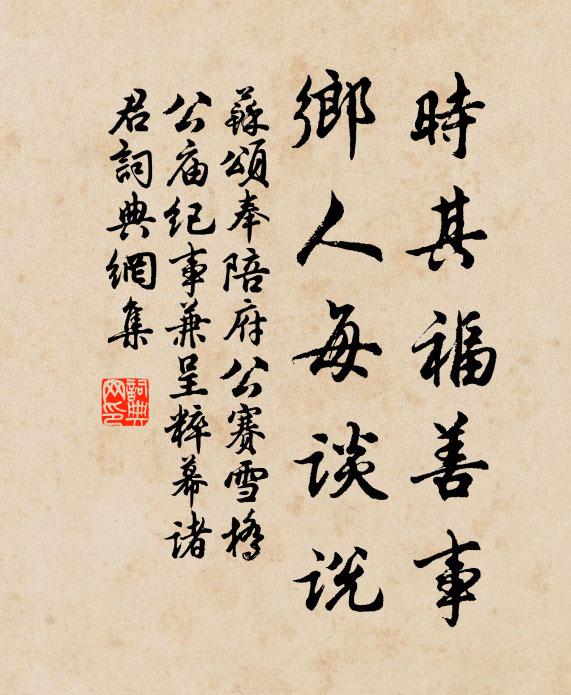 時其福善事
鄉人每談説
蘇頌奉陪府公賽雪橋
公庙纪事兼呈粹幕诸
君詞典網集
詞典
网印